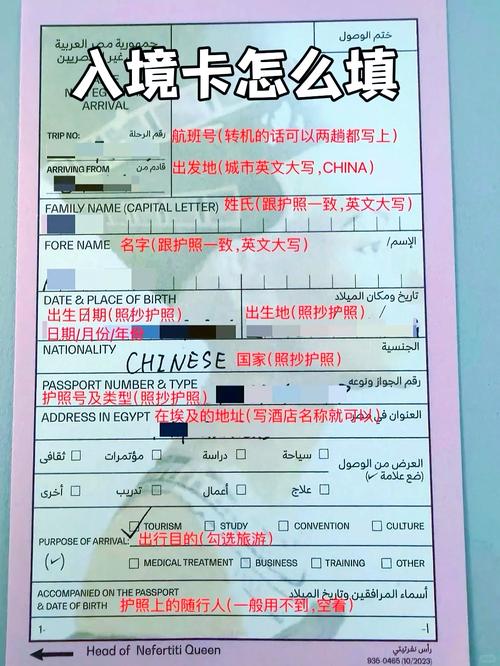 جمهورية مصر العربية
ختم الوصول
入境卡怎么填
ARRIVAL
TRIP NO:
رقم الرحلة
航班号(转机的话可以两趟都写上)
ARRIVING FROM
قادم من
出发地(城市英文大写,CHINA)
FAMILY NAME (CAPITAL LETTER)
姓氏(跟护照一致,英文大写)
FORE NAME
名字(跟护照一致,英文大写)
الإسم/
DATE & PLACE OF BIRTH
تاريخ ومكان الميلاد
出生日期(照抄护照)
出生地(照抄护照)
/
日期/月份/年份
NATIONALITY
CHINESE
国家(照抄护照)
الجنسية
PASSPORT NUMBER & TYPE
رقم الجواز ونوعه
护照号及类型(照抄护照)
ADDRESS IN EGYPT
在埃及的地址(写酒店名称就可以)
العنوان في مصر
سياحة
دراسة
مؤتمرات
ثقافى
العرض من الوصول
(ضع علامة ✓)
علاج
أعمال
تدريب
أخرى
TOURISM
STUDY
CONVENTION
CULTURE
PURPOSE OF ARRIVAL:
出行目的(勾选旅游)
(✓)
MEDICAL TREATMENT
BUSINESS
TRAINING
OTHER
ACCOMPANIED ON THE PASSPORT
أسماء المرافقين وتاريخ الميلاد
& DATE OF BIRTH
护照上的随行人(一般用不到,空着)
1-
-١
Head of Nefertiti Queen
رأس نفرتيتي
935-0465 (10/2023)